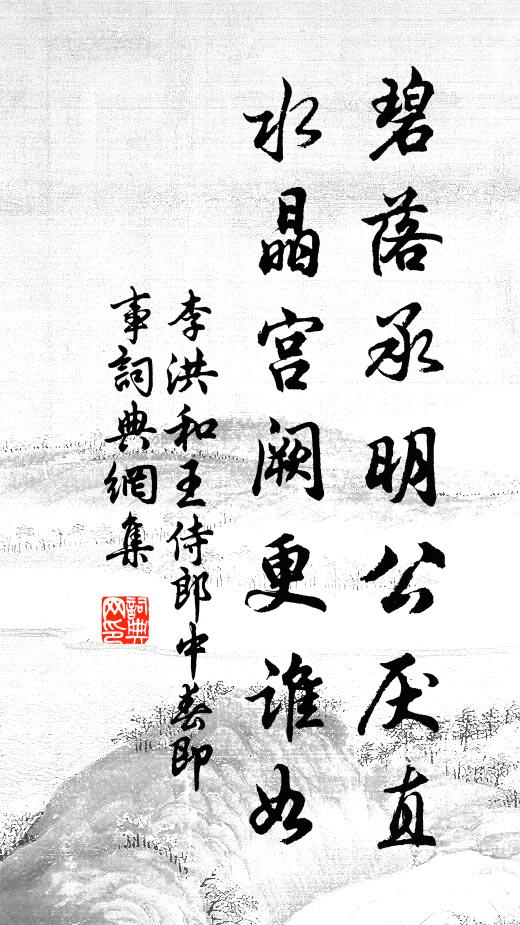 碧落承明公厌直
水晶宫阙更谁如
李洪和王侍郎中春即
事詞典網集
詞典网印